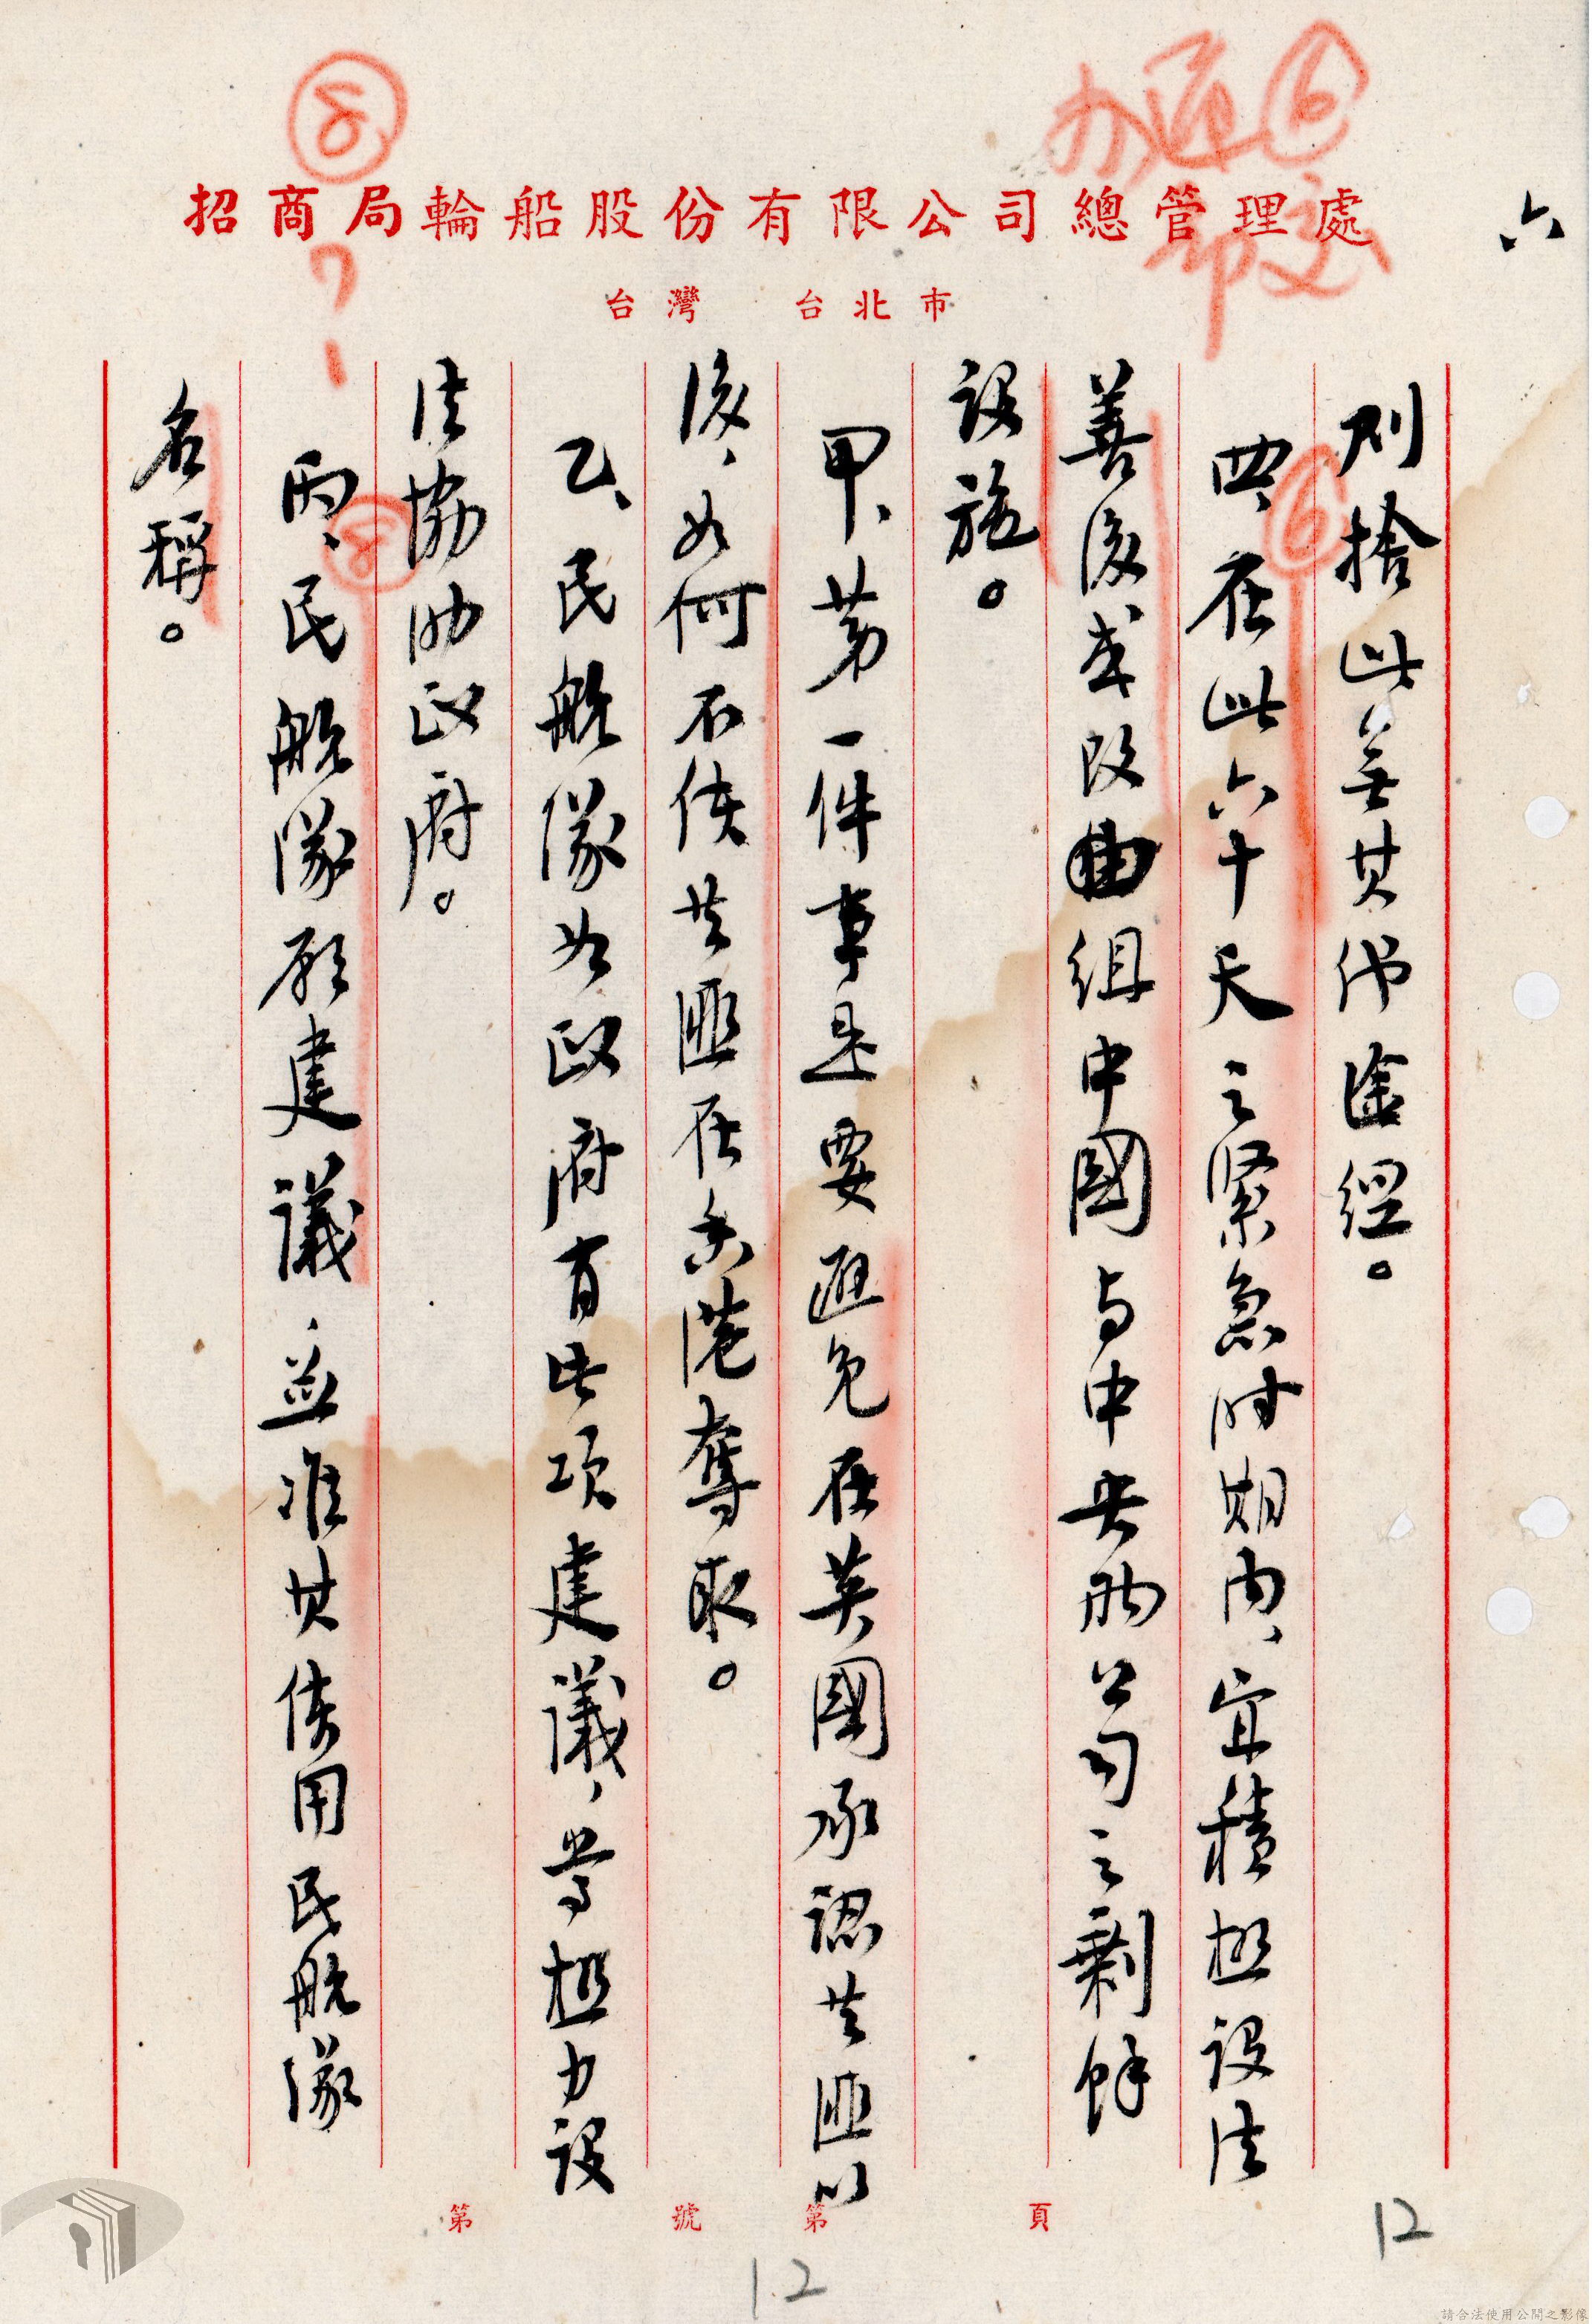 六
招商局輪船股份有限公司總管理處
台灣 台北市
則捨此並無其他途徑。
四、在此六十天之緊急時期內、宜積極設法
善後或改組中國與中央兩公司之剩餘
設施。
甲、第一件事是要避免在英國承認共匪以
後、如何不使共匪在香港奪取。
乙、民航隊如政府有此項建議、當極力設
法協助政府。
丙、民航隊願建議、並准其使用民航隊
名稱。
⑥
⑥
⑧
⑧
第 號 第 頁
12
12
請合法使用公開之影像